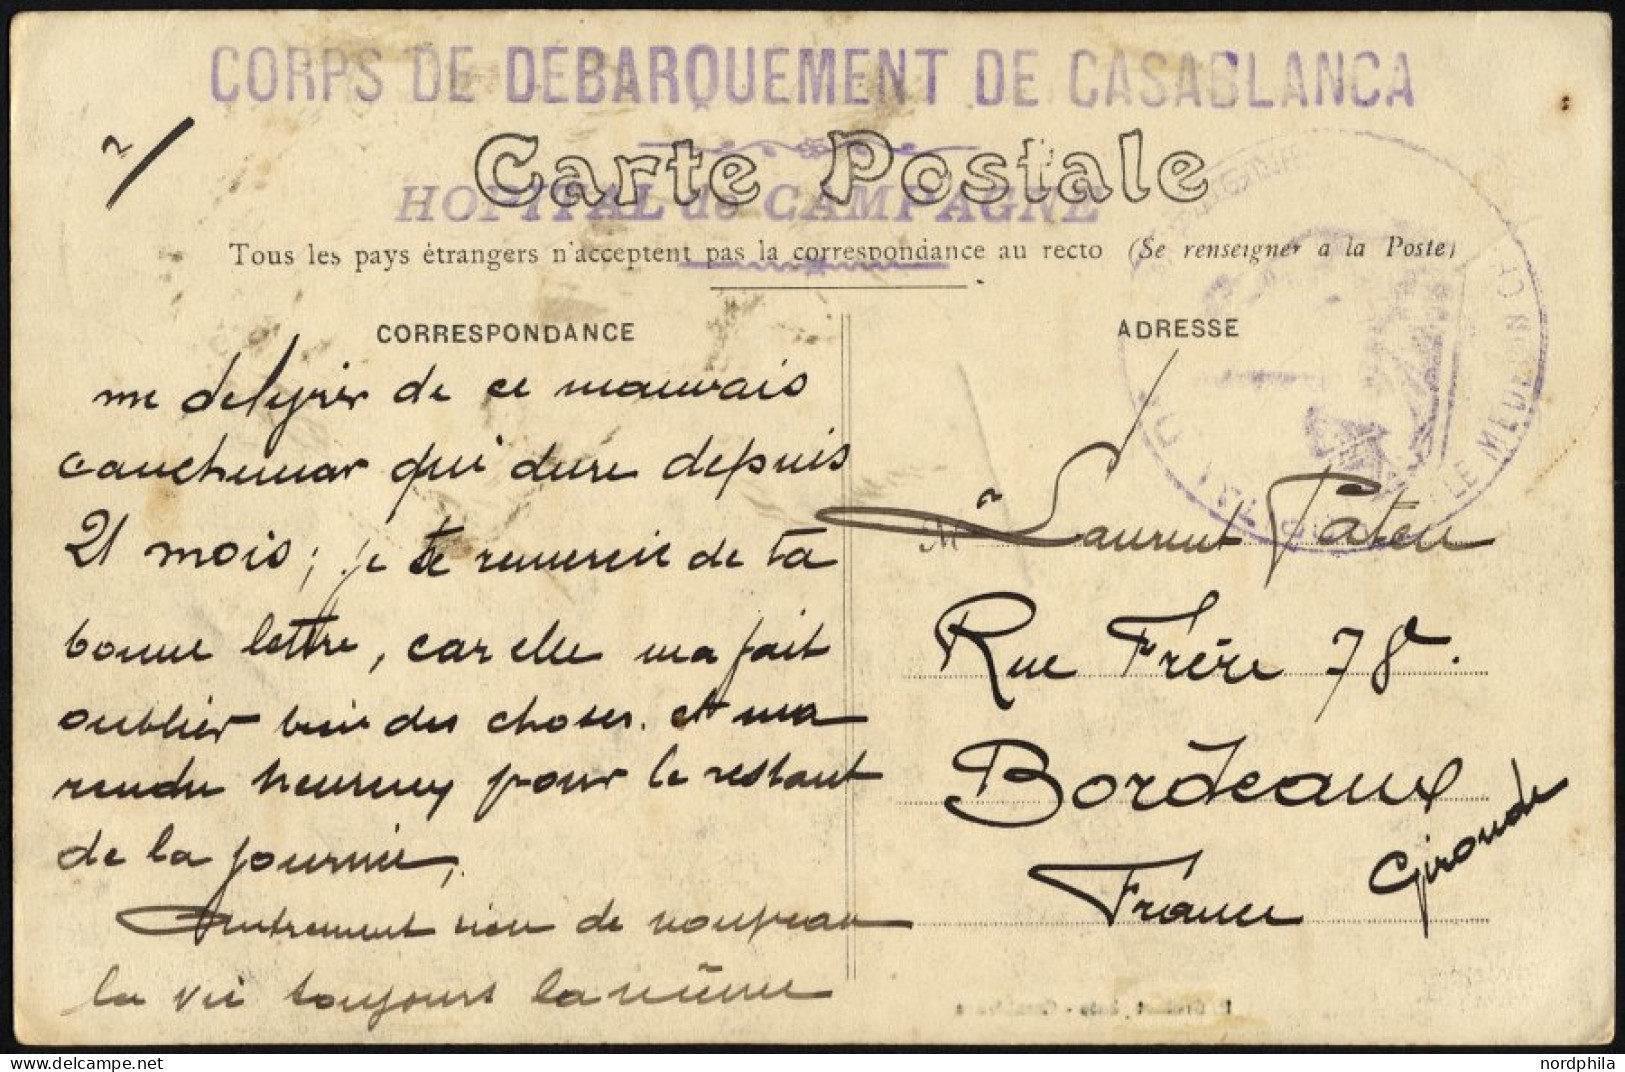 CORPS DE DÉBARQUEMENT DE CASABLANCA
2/
Carte Postale
HOPITAL de CAMPAGNE
Tous les pays étrangers n'acceptent pas la correspondance au recto (Se renseigner a la Poste)
CORRESPONDANCE
ADRESSE
LE MÉDECIN CH
me de ce mauvais
cauchemar qui dure depuis
21 mois; je te remercie de ta
bonne lettre, car elle ma fait
oublier bien des choses. et ma
rendu heureux pour le restant
de la journée,
Autrement rien de nouveau
la vie toujours la même
Mr Laurent
Rue Frère 78.
Bordeaux
Gironde
France
nordphila.com
nordphila